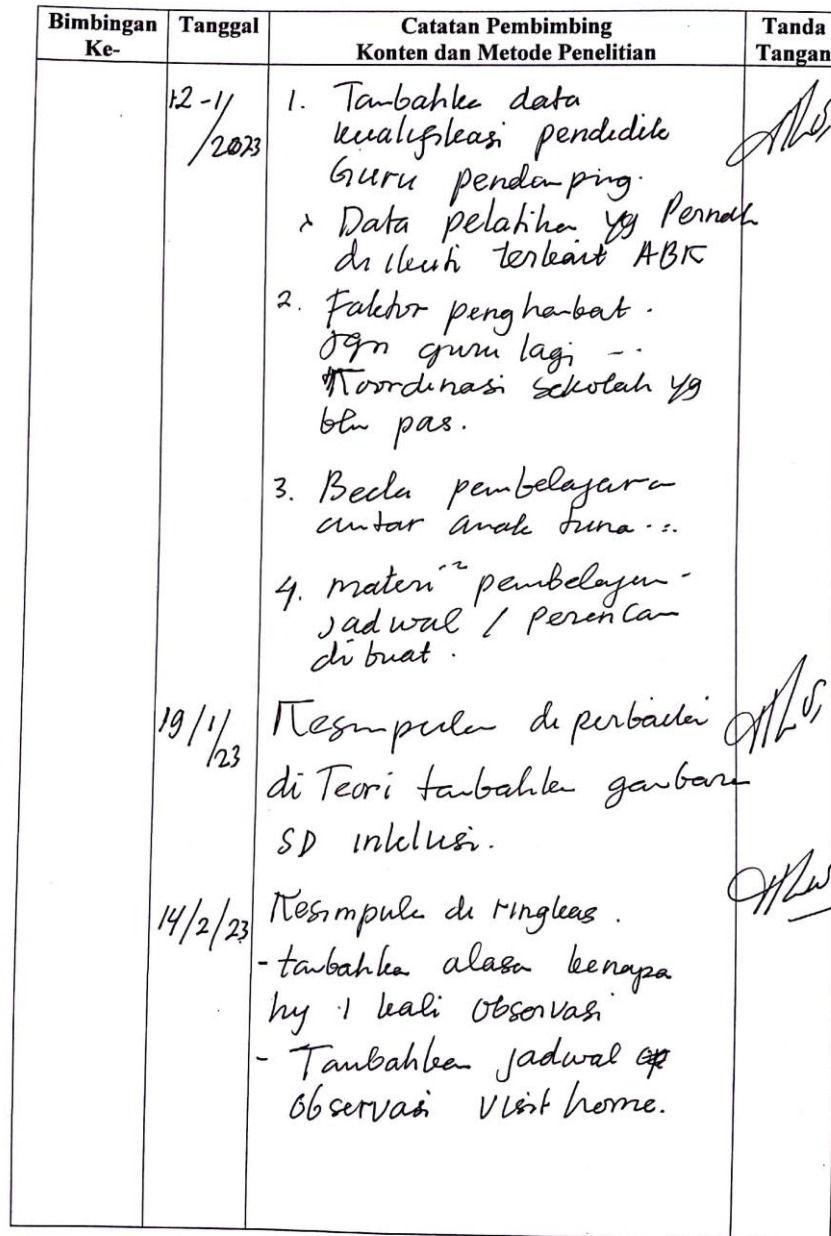 Bimbingan Ke-
Tanggal
Catatan Pembimbing
Konten dan Metode Penelitian
Tanda Tangan
12-1/2023
1. Tambahka data
kualifikasi pendidik
Guru pendamping.
Data pelatiha yg Pernah
di ikuti terkait ABK
2. Faktor penghambat.
guru lagi
Koordinasi sekolah yg
blm pas.
3. Beda pembelajaran
antar anak tuna ...
4. materi" pembelajan -
jadwal / perencan
di buat.
19/1/23
Kesimpulan di perbaiki
di Teori tambahka gambaran
SD inklusi.
14/2/23
Kesimpula di ringkas.
- tambahka alasa kenapa
hy 1 kali observasi
- Tambahkan jadwal
observasi visit home.